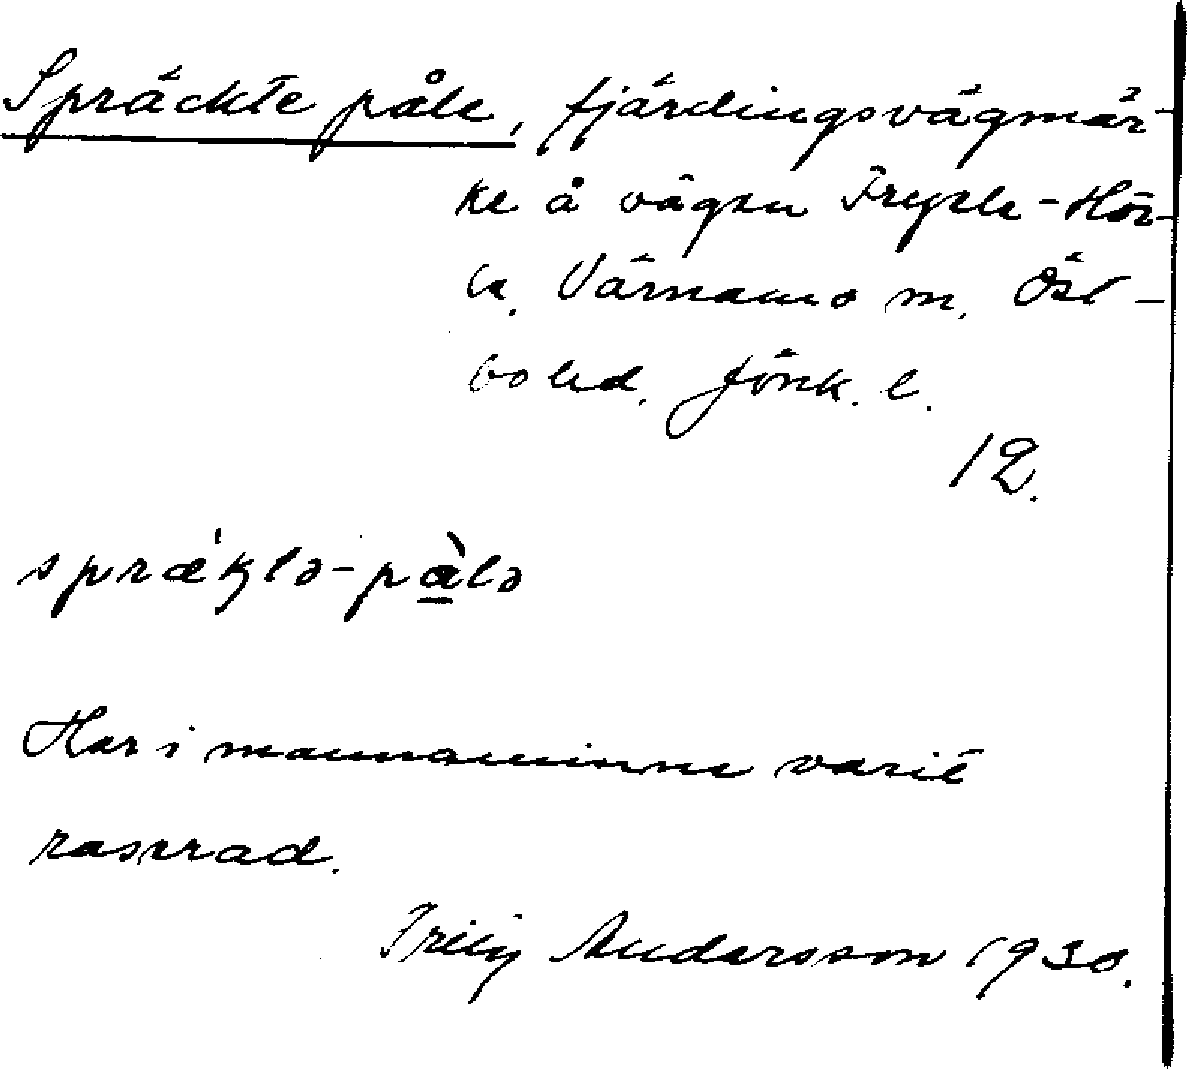 Spräckte påle, fjärdingsvägmär-
ke å vägen Fryele-Hör-
le. Värnamo m. Öst-
bo hd. Jönk. l.
12.
spræktə-pàlə
Har i mannaminne varit
raserad.
Andersson 1930.